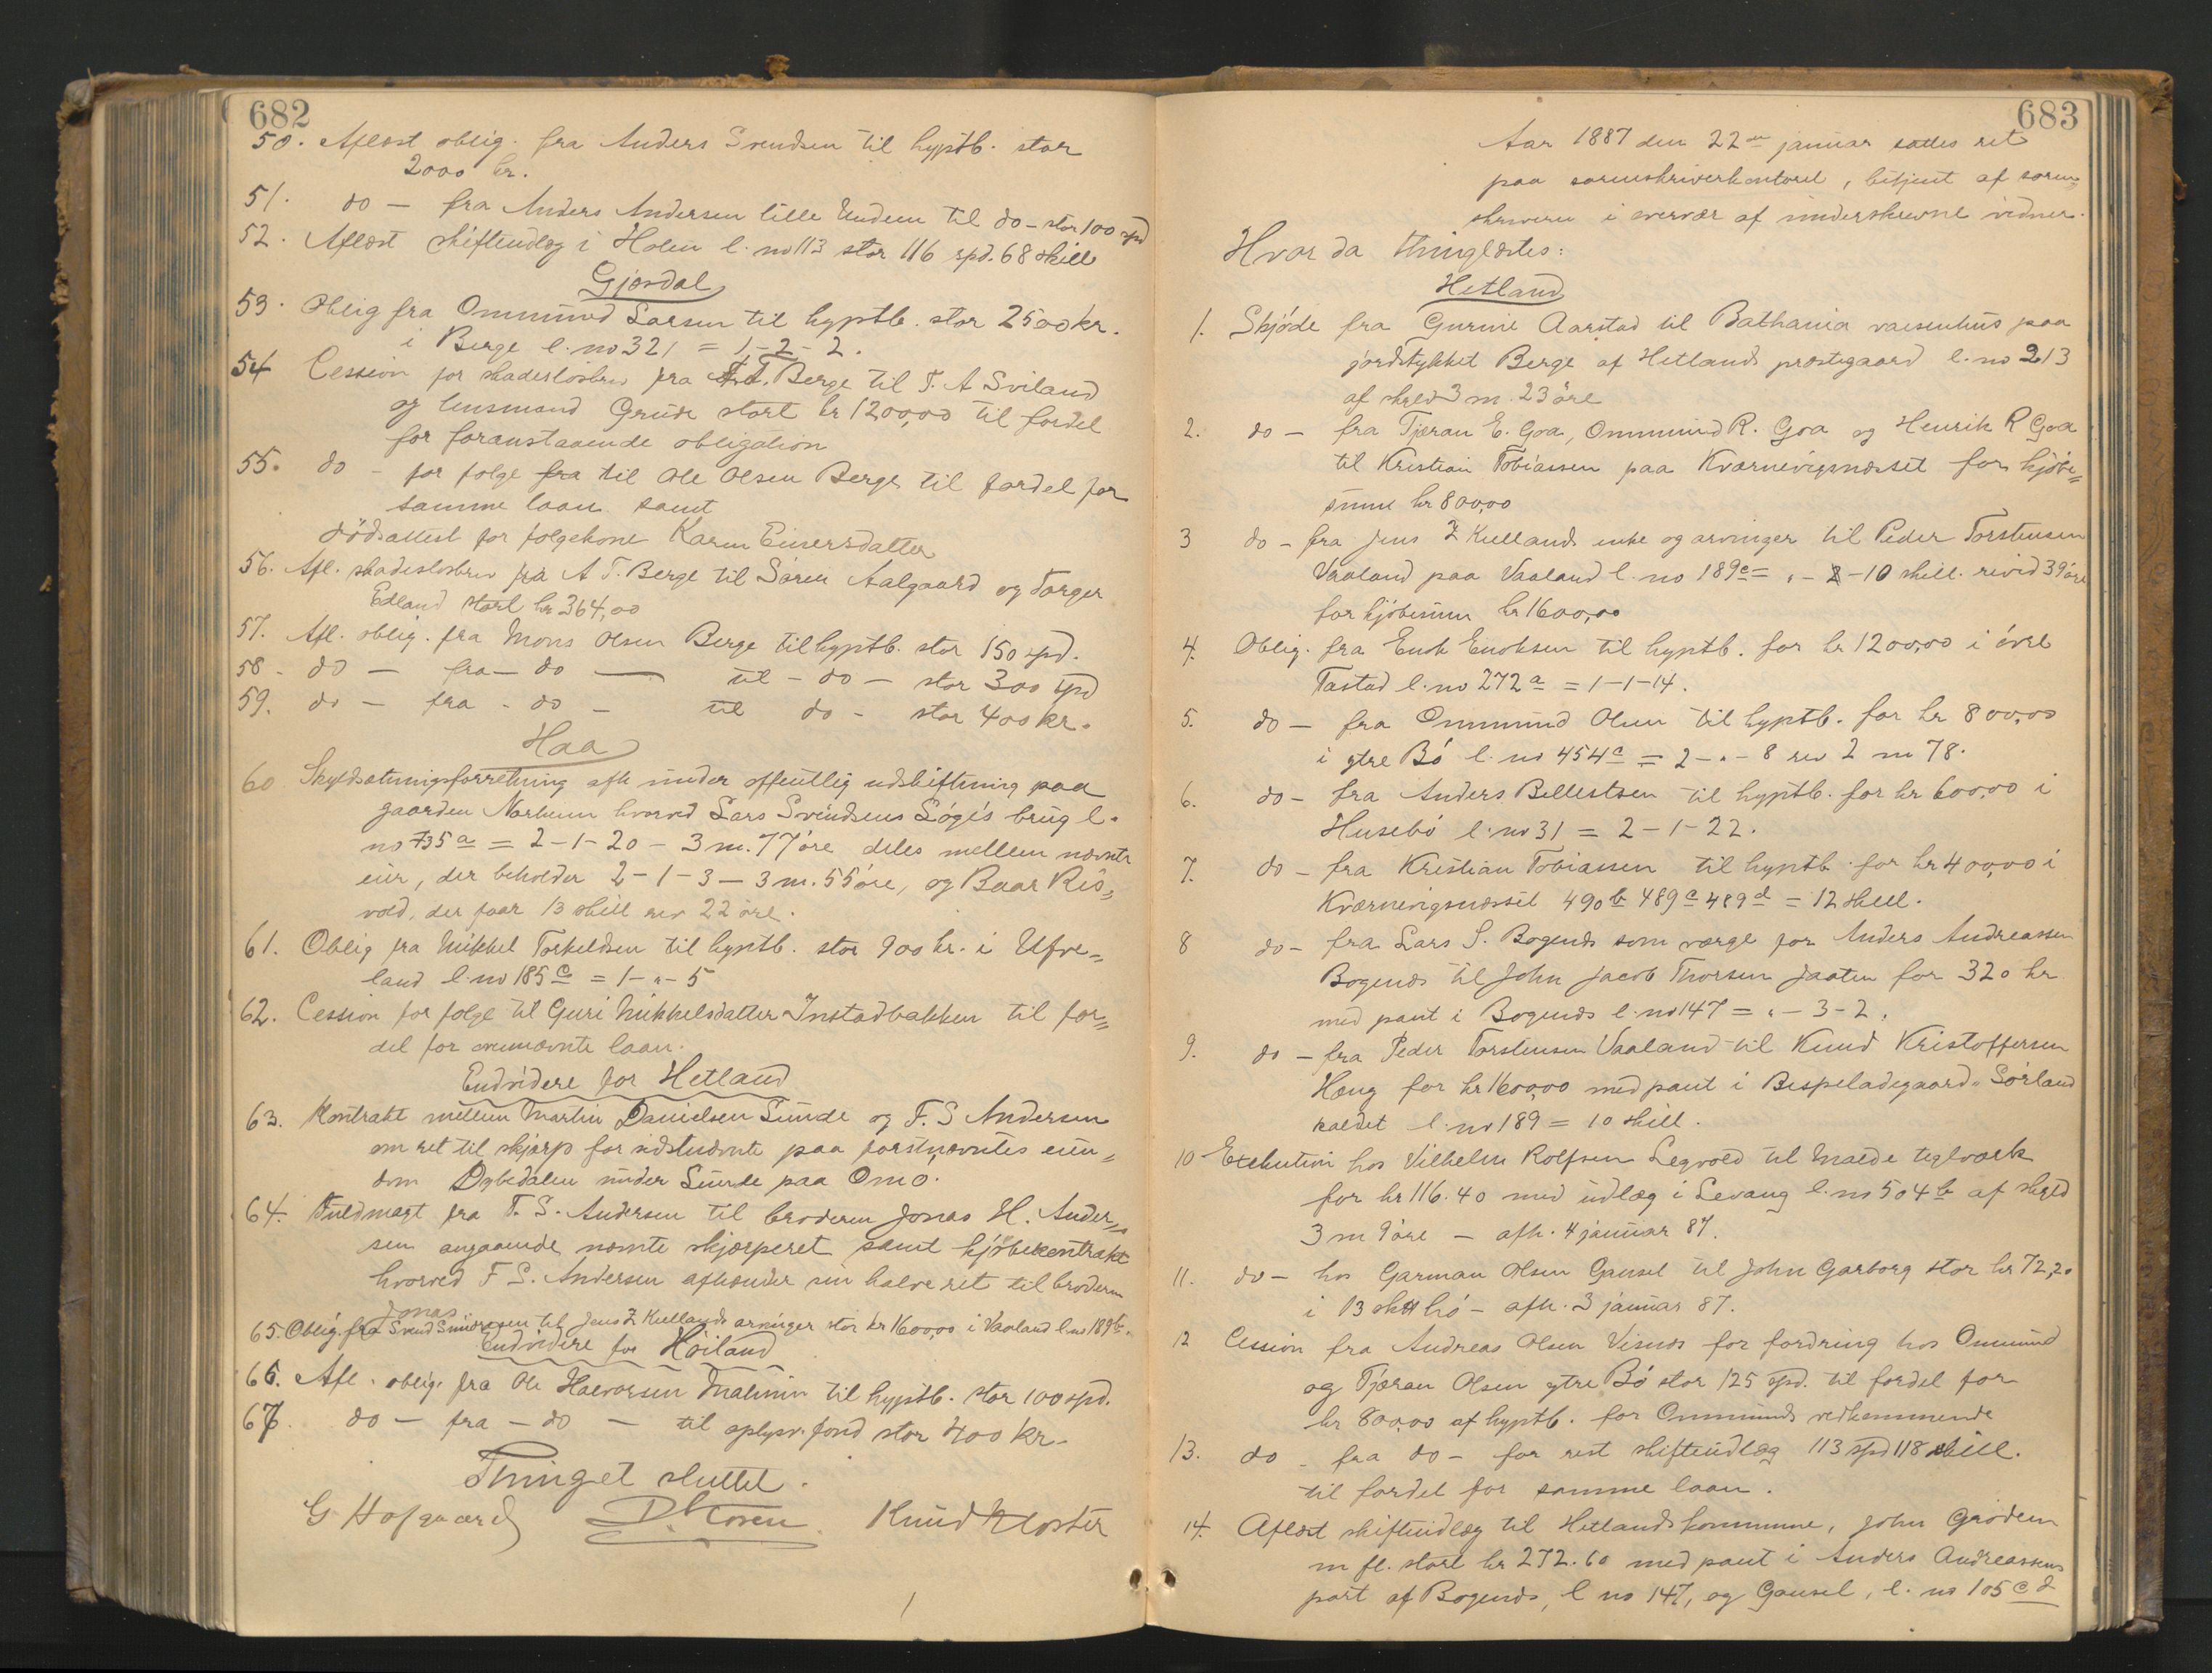 682
50. Aflæst oblig. fra Anders Svendsen til hyptb. stor
2000 kr.
51. do — fra Anders Andersen lille Undem til do - stor 100 spd
52. Aflæst skifteudlæg i Holen l. no 113 stor 116 spd. 68 skill
Gjesdal
53. Oblig fra Ommund Larsen til hyptb. stor 2500 kr.
i Berge l. no 321 = 1-2-2.
54 Cession for skadeslosbrev fra A.T. Berge til T. A Sviland
og lensmand Grude stort kr 1200,00 til fordel
for foranstaaende obligation
55. do - for folge fra til Ole Olsen Berge til fordel for
samme laan samt
dödsattest for folgekone Karen Einersdatter
56. Afl. skadeslosbrev fra A T. Berge til Sören Aalgaard og Torger
Edland stort kr 364,00
57. Afl. oblig. fra Mons Olsen Berge til hyptb. stor 150 spd.
58 - do — fra — do — til - do — stor 300 spd
59. do — fra - do — til do - stor 400 kr.
Haa
60 Skyldsætningsforretning afh under offentlig udskiftning paa
gaarden Narheim hvorved Lars Svendsens Lögés brug l.
no 735 a = 2-1-20 - 3 m. 77 öre deles mellem nævnte
eier, der beholder 2-1-3 — 3 m. 55 öre, og Baar Ris„
vold, der faar 13 skill rev 22 öre.
61. Oblig fra Mikkel Torkeldsen til hyptb. stor 900 kr. i Ufve„
land l. no 185 c = 1-"-5
62. Cession for folge til Guri Mikkelsdatter Instadbakken til for„
del for ovennævnte laan.
Endvidere for Hetland
63. Kontrakt mellem Martin Danielsen Sunde og F. S Andersen
om ret til skjærp for sidstnævnte paa förstnævntes eien„
dom Dybedalen under Sunde paa Omö.
64. Fuldmagt fra F. S. Andersen til broderen Jonas H. Ander„
sen angaaende nævnte skjærperet samt kjöbekontrakt
hvorved F S. Andersen afhænder sin halve ret til broderen
Jonas
65. Oblig. fra Svend Simonsen til Jens Z Kiellands arvinger stor kr 1600,00 i Vaaland l. no 189 b.
Endvidere for Höiland
66. Afl. oblig. fra Ole Halvorsen Malmin til hyptb. stor 100 spd.
67. do — fra — do — til oplysn. fond stor 400 kr.
Thinget sluttet.
G Hofgaard Knud Kloster
683
Aar 1887 den 22de januar sattes ret
paa sorenskriverkontoret, betjent af soren„
skriveren i overvær af underskrevne vidner.
Hvor da thinglæstes:
Hetland
1. Skjöde fra Gurine Aarstad til Bathania vaisenhus paa
jordstykket Berge af Hetlands præstegaard l. no 213
af skyld 3 m. 23 öre
2. do — fra Tjæran E. Goa, Ommund R. Goa og Henrik R Goa
til Kristian Tobiassen paa Kværnevigsnæsset for kjöbe„
sum kr 800,00
3 do — fra Jens Z Kiellands enke og arvinger til Peder Torstensen
Vaaland paa Vaaland l. no 189 c = " - 2 - 10 skill. revid 39 öre
for kjöbesum kr 1600,00
4. Oblig. fra Enok Enoksen til hyptb. for kr 1200,00 i övre
Tastad l. no 272 a = 1-1-14.
5. do — fra Ommund Olsen til hyptb. for kr 800,00
i ytre Bö l. no 454 c = 2-"-8 rev 2 m 78.
6. do — fra Anders Bellestsen til hyptb. for kr 600,00 i
Husebö l. no 31 = 2-1-22.
7. do — fra Kristian Tobiassen til hyptb. for kr 400,00 i
Kværnevigsnæsset 490 b 489 c 489 d = 12 skill.
8 do — fra Lars S. Bogenæs som værge for Anders Andreassen
Bogenæs til John Jacob Thorsen Jaaten for 320 kr
med pant i Bogenæs l. no 147 = " - 3-2.
9. do — fra Peder Torstensen Vaaland til Knud Kristoffersen
Haug for kr 1600,00 med pant i Bispeladegaard " Sörland
kaldet l. no 189 = 10 skill.
10 Exekution hos Vilhelm Rolfsen Legvold til Malde teglværk
for kr 116.40 med udlæg i Levang l. no 504 b af skyld
3 m 9 öre — afh. 4 januar 87.
11. do — hos Garman Olsen Gausel til John Garborg stor kr 72,20
i 13 sk#t hö - afh. 3 januar 87.
12 Cession fra Andreas Olsen Visnæs for fordring hos Ommund
og Tjæran Olsen ytre Bö stor 125 spd. til fordel for
kr 800,00 af hyptb. for Ommunds vedkommende
13. do - fra do - for rest skifteudlæg 113 spd 118 skill.
til fordel for samme laan.
14. Aflæst skifteudlæg til Hetlands kommune, John Grödem
m fl. stort kr 272.60 med pant i Anders Andreassens
part af Bogenæs, l no 147, og Gausel, l. no 105 c d